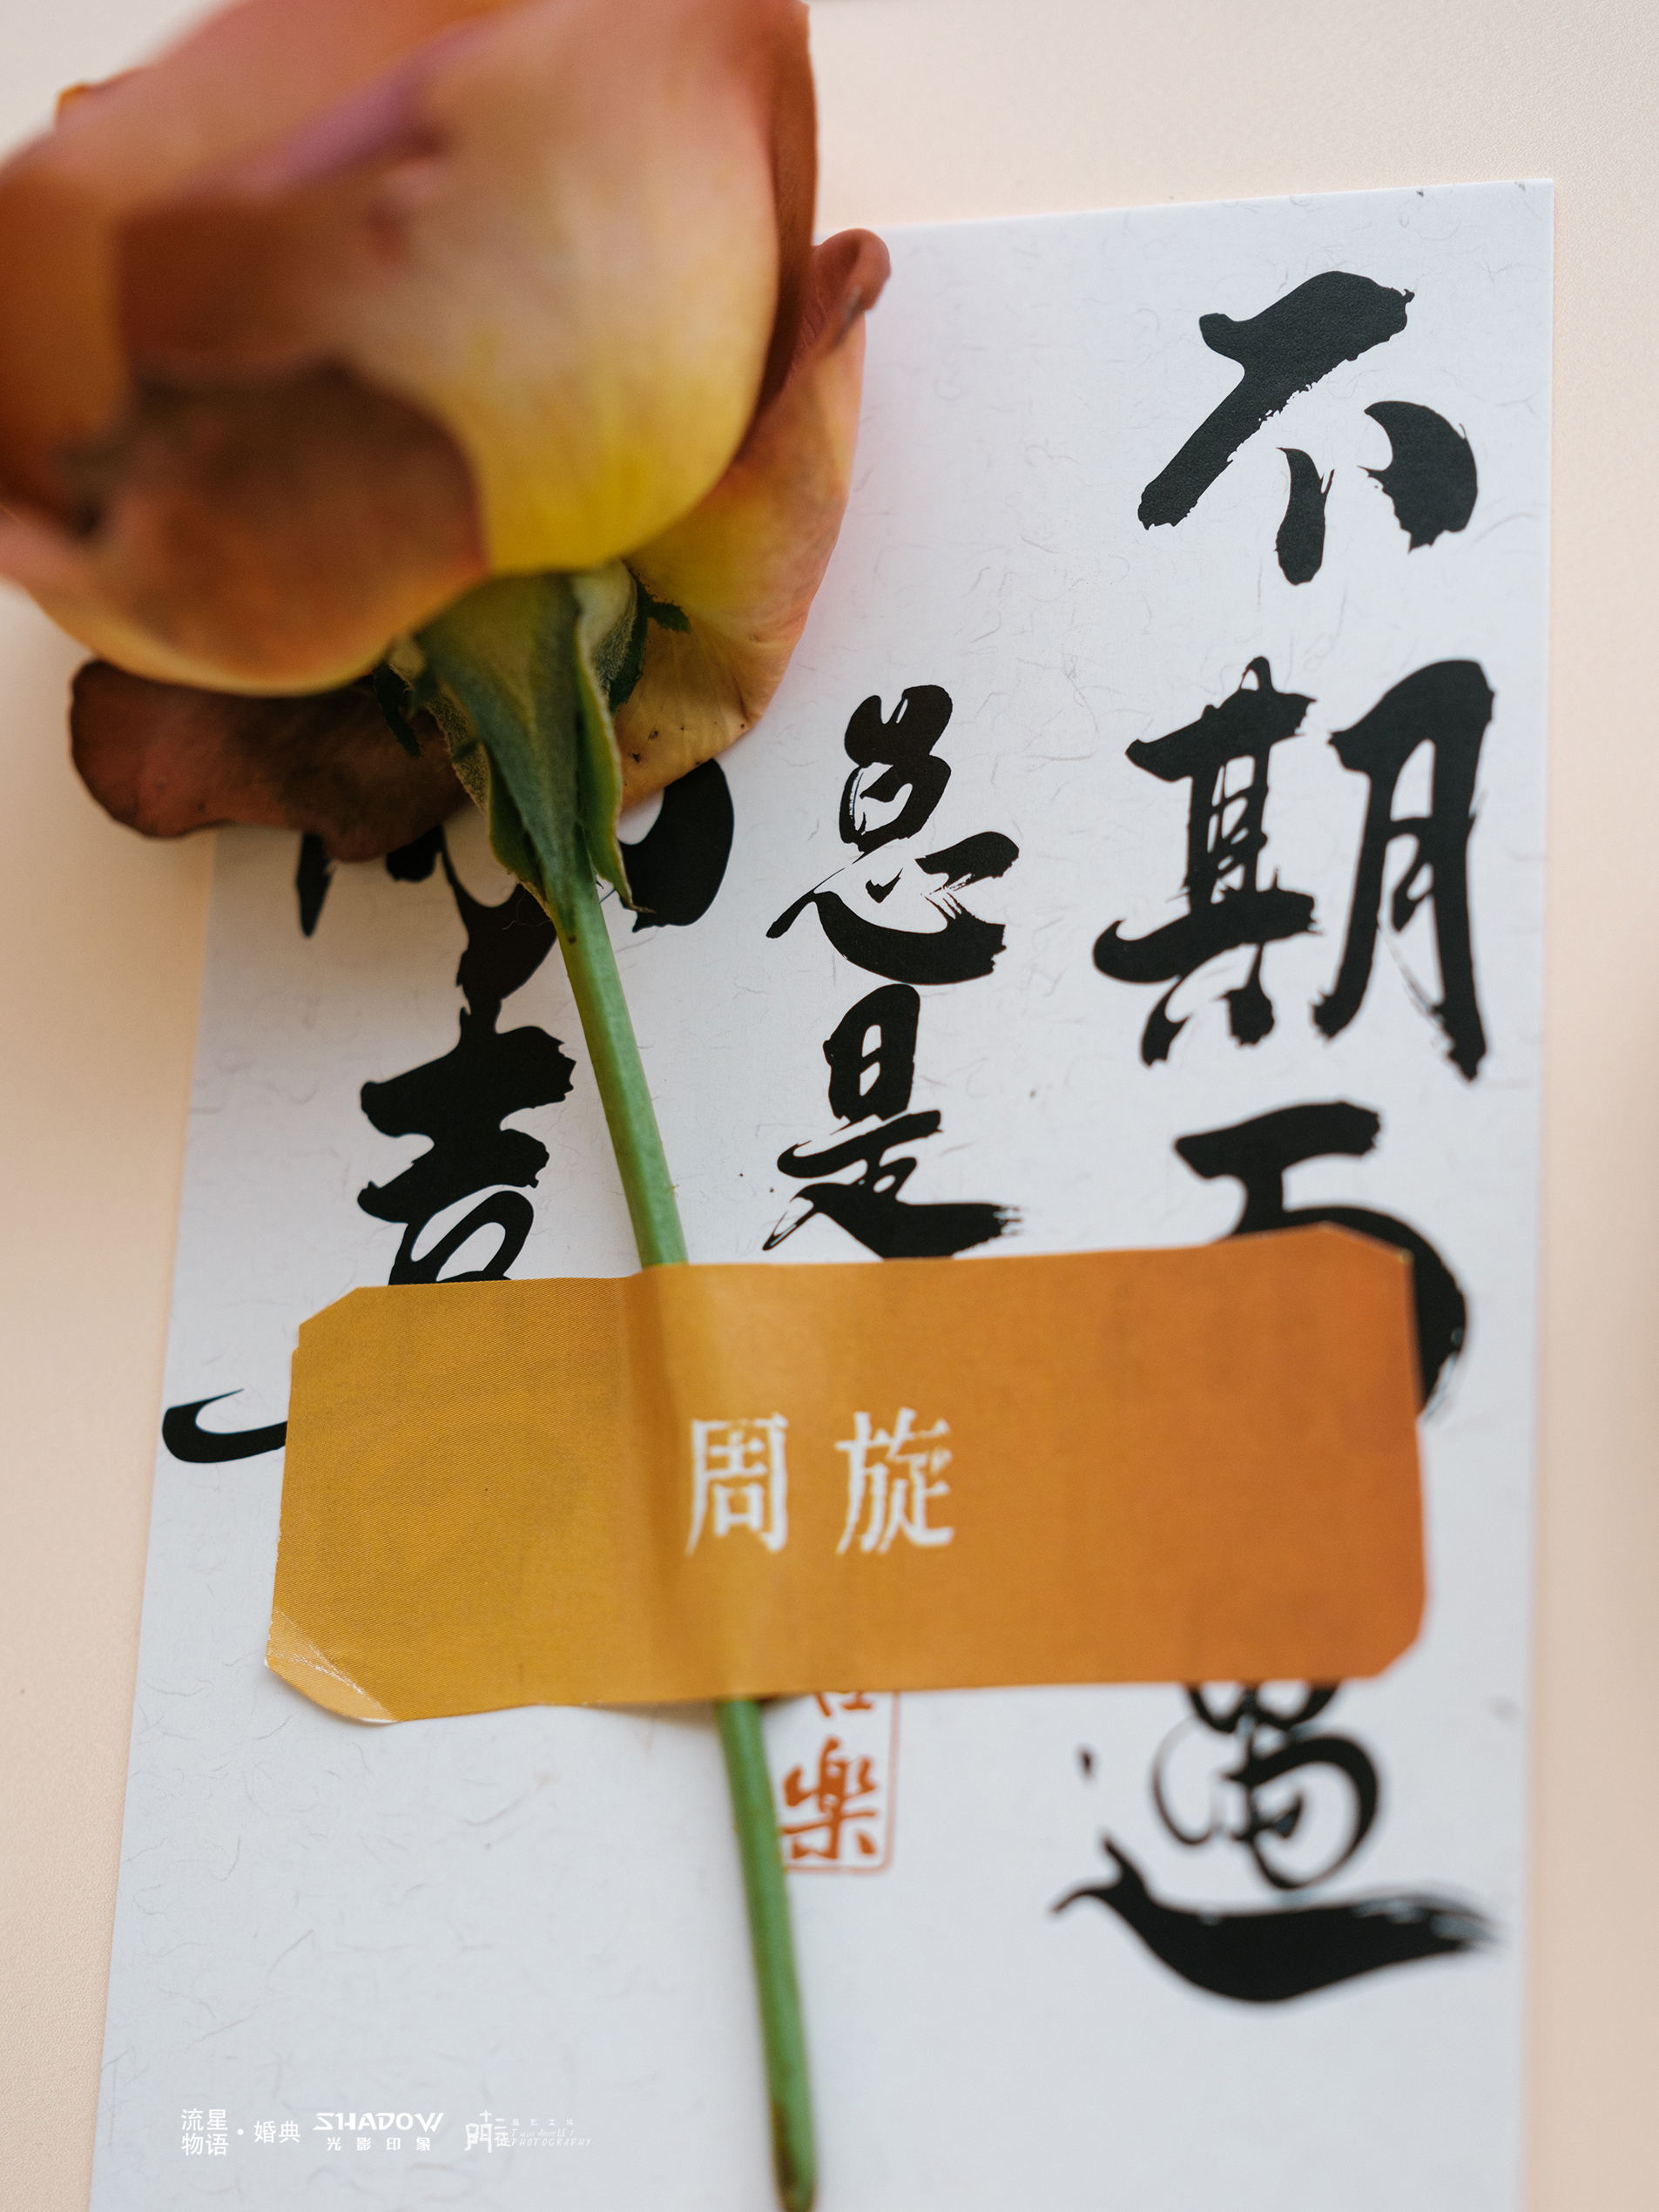 不期而遇
总是
周旋
楽
流星
物语
·婚典
SHADOW
光影印象
PHOTOGRAPHY